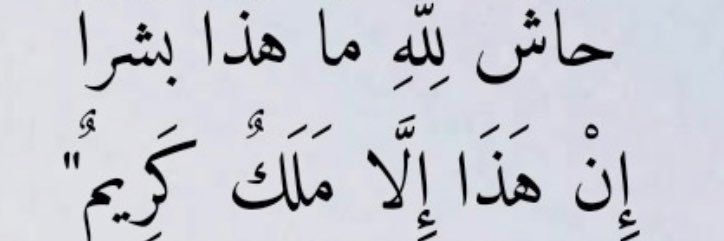 حاش لِلّهِ ما هذا بشرا
إِنْ هَذَا إِلَّا مَلَكٌ كَرِيمٌ"